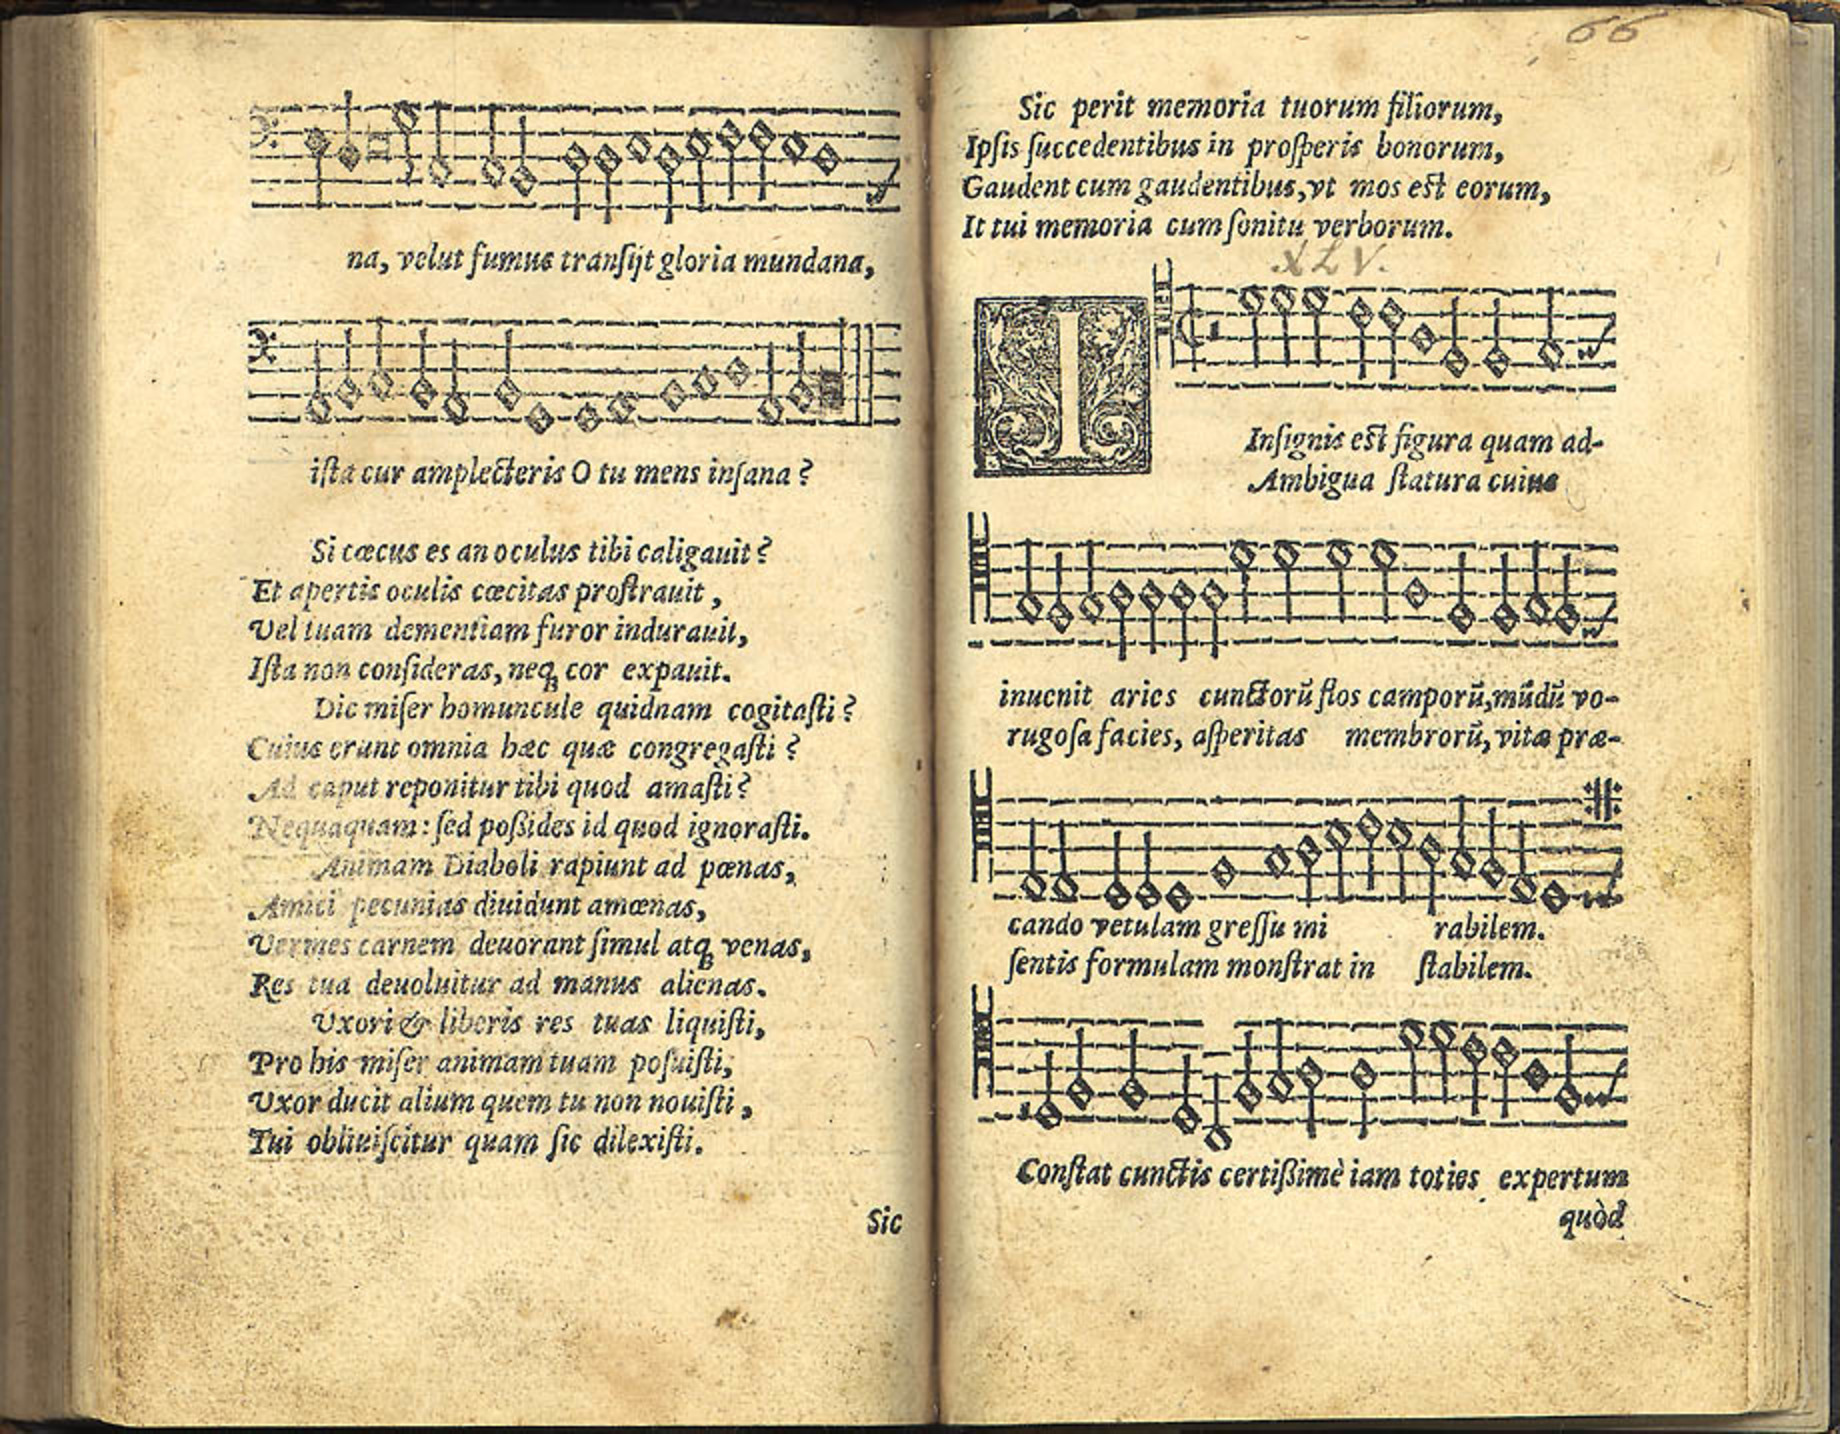 na, velut fumus tranſijt gloria mundana,
iſta cur amplecteris O tu mens inſana?
Si cæcus es an oculus tibi caligauit?
Et apertis oculis cæcitas proſtrauit,
Vel tuam dementiam furor indurauit,
Iſta non conſideras, neq; cor expauit.
Dic miſer homuncule quidnam cogitaſti?
Cuius erunt omnia hæc quæ congregaſti?
Ad caput reponitur tibi quod amaſti?
Nequaquam: ſed poßides id quod ignoraſti.
Animam Diaboli rapiunt ad pœnas,
Amici pecunias diuidunt amœnas,
Vermes carnem deuorant ſimul atq; venas,
Res tua deuoluitur ad manus alienas.
Vxori & liberis res tuas liquiſti,
Pro his miſer animam tuam poſuiſti,
Vxor ducit alium quem tu non nouiſti,
Tui obliuiſcitur quam ſic dilexiſti.
Sic
66
Sic perit memoria tuorum filiorum,
Ipſis ſuccedentibus in proſperis bonorum,
Gaudent cum gaudentibus, vt mos est eorum,
It tui memoria cum ſonitu verborum.
XLV.
I
Inſignis est figura quam ad-
Ambigua ſtatura cuius
inuenit aries cunctorū flos camporū, mūdū vo-
rugoſa facies, aſperitas membrorū, vitæ præ-
cando vetulam greſſu mi rabilem.
ſentis formulam monſtrat in ſtabilem.
Conſtat cunctis certißimè iam toties expertum
quòd